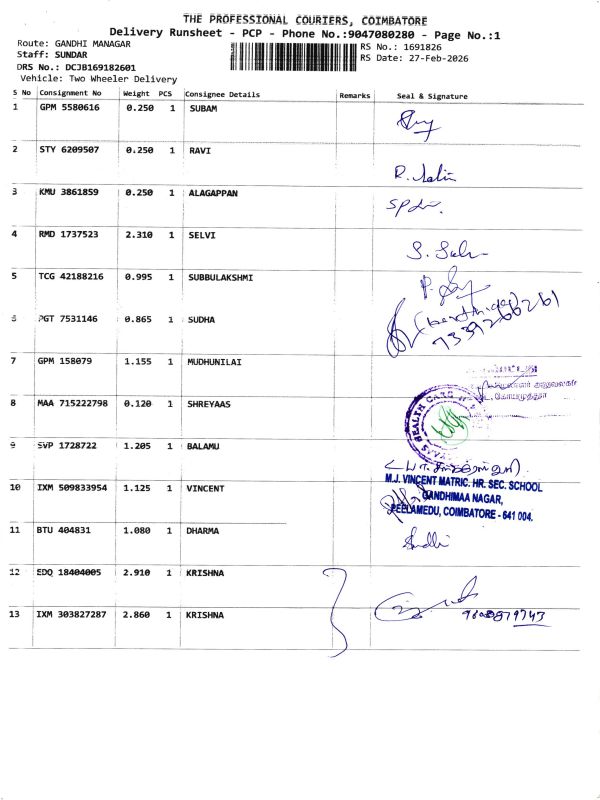 THE PROFESSIONAL COURIERS, COIMBATORE
Delivery Runsheet - PCP - Phone No.:9047080280 - Page No.:1
Route: GANDHI MANAGAR
RS No.: 1691826
Staff: SUNDAR
RS Date: 27-Feb-2026
DRS No.: DCJB169182601
Vehicle: Two Wheeler Delivery
S No Consignment No Weight PCS Consignee Details Remarks Seal & Signature
1 GPM 5580616 0.250 1 SUBAM
2 STY 6209507 0.250 1 RAVI
3 KMU 3861859 0.250 1 ALAGAPPAN
4 RMD 1737523 2.310 1 SELVI
5 TCG 42188216 0.995 1 SUBBULAKSHMI
6 PGT 7531146 0.865 1 SUDHA
7 GPM 158079 1.155 1 MUDHUNILAI
8 MAA 715222798 0.120 1 SHREYAAS
HEALTH CARE
9 SVP 1728722 1.205 1 BALAMU
10 IXM 509833954 1.125 1 VINCENT
M.J. VINCENT MATRIC. HR. SEC. SCHOOL
GANDHIMAA NAGAR,
PEELAMEDU, COIMBATORE - 641 004.
11 BTU 404831 1.080 1 DHARMA
12 EDQ 18404005 2.910 1 KRISHNA
13 IXM 303827287 2.860 1 KRISHNA